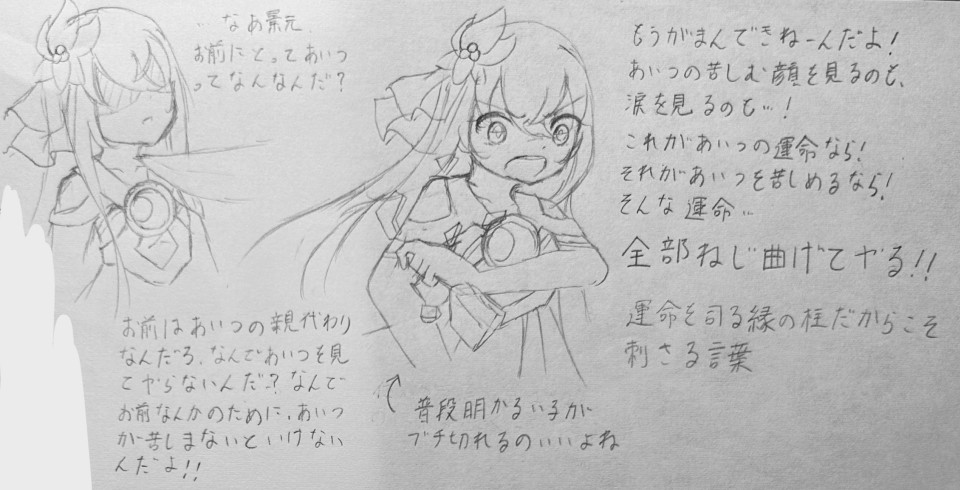 …なあ景元.
お前にとってあいつ
ってなんなんだ？
お前はあいつの親代わり
なんだろ、なんであいつを見
てやらないんだ？なんで
お前なんかのために、あいつ
が苦しまないといけない
んだよ!!
もうがまんできねーんだよ！
あいつの苦しむ顔を見るのも、
涙を見るのも…！
これがあいつの運命なら！
それがあいつを苦しめるなら！
そんな運命…
全部ねじ曲げてやる!!
運命を司る縁の柱だからこそ
刺さる言葉
普段明かるい子が
ブチ切れるのいいよね